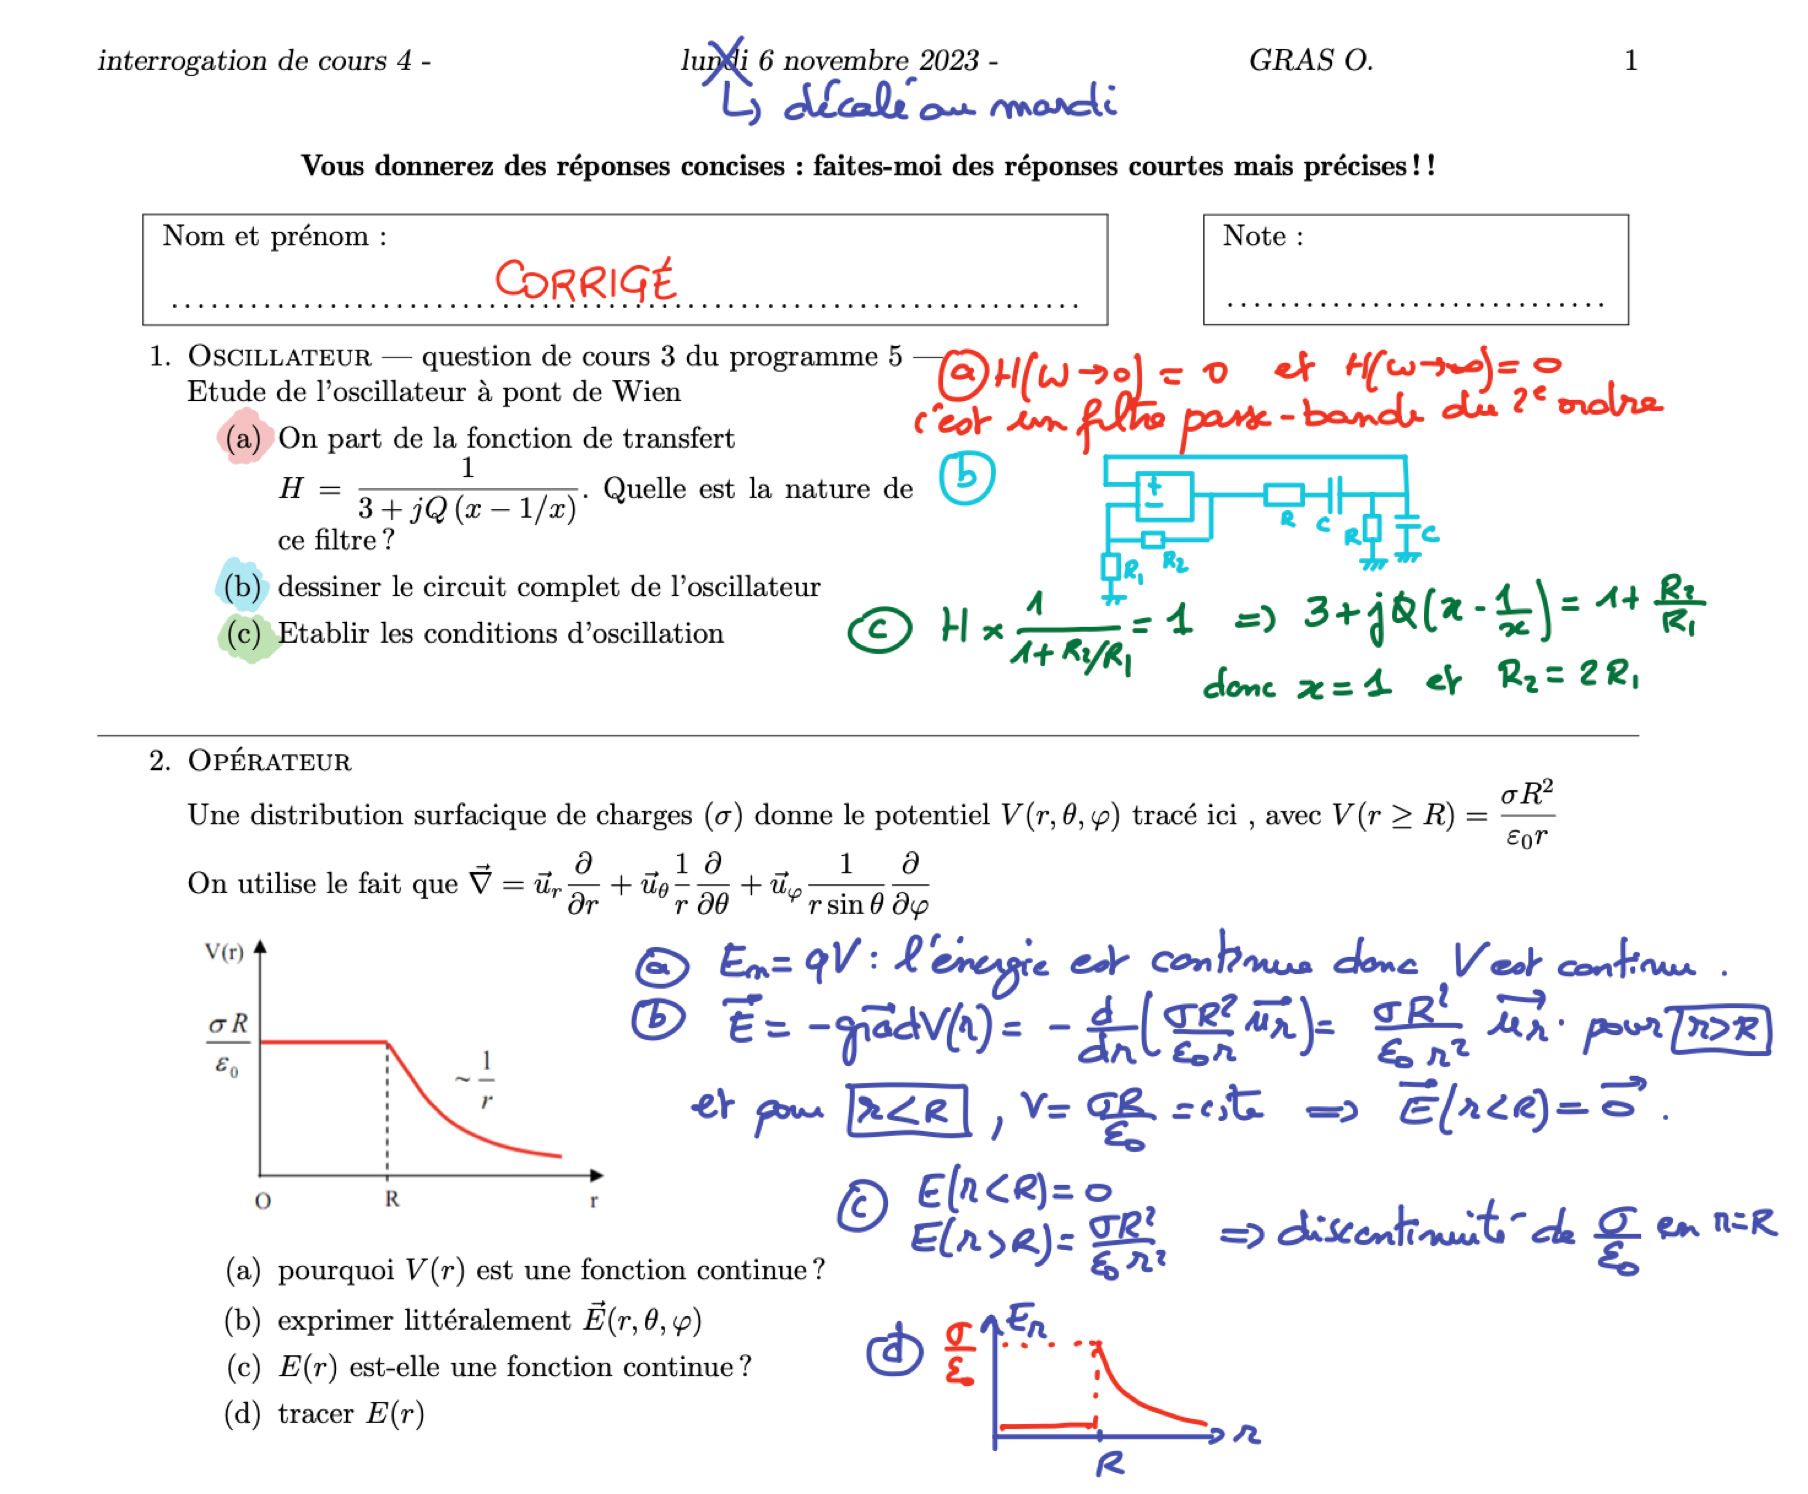 interrogation de cours 4 - lundi 6 novembre 2023 - GRAS O. 1
↳ décalé au mardi
Vous donnerez des réponses concises : faites-moi des réponses courtes mais précises!!
Nom et prénom :
CORRIGÉ
Note :
1. OSCILLATEUR — question de cours 3 du programme 5 —
Etude de l'oscillateur à pont de Wien
(a) On part de la fonction de transfert
H = 1 / (3 + jQ (x − 1/x)). Quelle est la nature de
ce filtre ?
(b) dessiner le circuit complet de l'oscillateur
(c) Etablir les conditions d'oscillation
(a) H(ω→0) = 0 et H(ω→∞) = 0
c'est un filtre passe-bande du 2e ordre
(b)
+
−
R C R C
R1 R2
(c) H × 1 / (1 + R2/R1) = 1 ⇒ 3 + jQ(x − 1/x) = 1 + R2/R1
donc x = 1 et R2 = 2 R1
2. OPÉRATEUR
Une distribution surfacique de charges (σ) donne le potentiel V(r, θ, φ) tracé ici , avec V(r ≥ R) = σR² / ε₀r
On utilise le fait que ∇⃗ = u⃗r ∂/∂r + u⃗θ 1/r ∂/∂θ + u⃗φ 1/(r sin θ) ∂/∂φ
V(r)
σ R / ε₀
~ 1/r
O R r
(a) Em = qV : l'énergie est continue donc V est continu .
(b) E⃗ = −grad⃗V(r) = − d/dr (σR²/ε₀r u⃗r) = σR²/ε₀ r² u⃗r . pour r>R
et pour r<R , V = σR/ε₀ = cste ⇒ E⃗(r<R) = 0⃗ .
(c) E(r<R) = 0
E(r>R) = σR²/ε₀ r² ⇒ discontinuité de σ/ε₀ en r=R
(a) pourquoi V(r) est une fonction continue ?
(b) exprimer littéralement E⃗(r, θ, φ)
(c) E(r) est-elle une fonction continue ?
(d) tracer E(r)
(d) σ/ε₀ Er
r
R